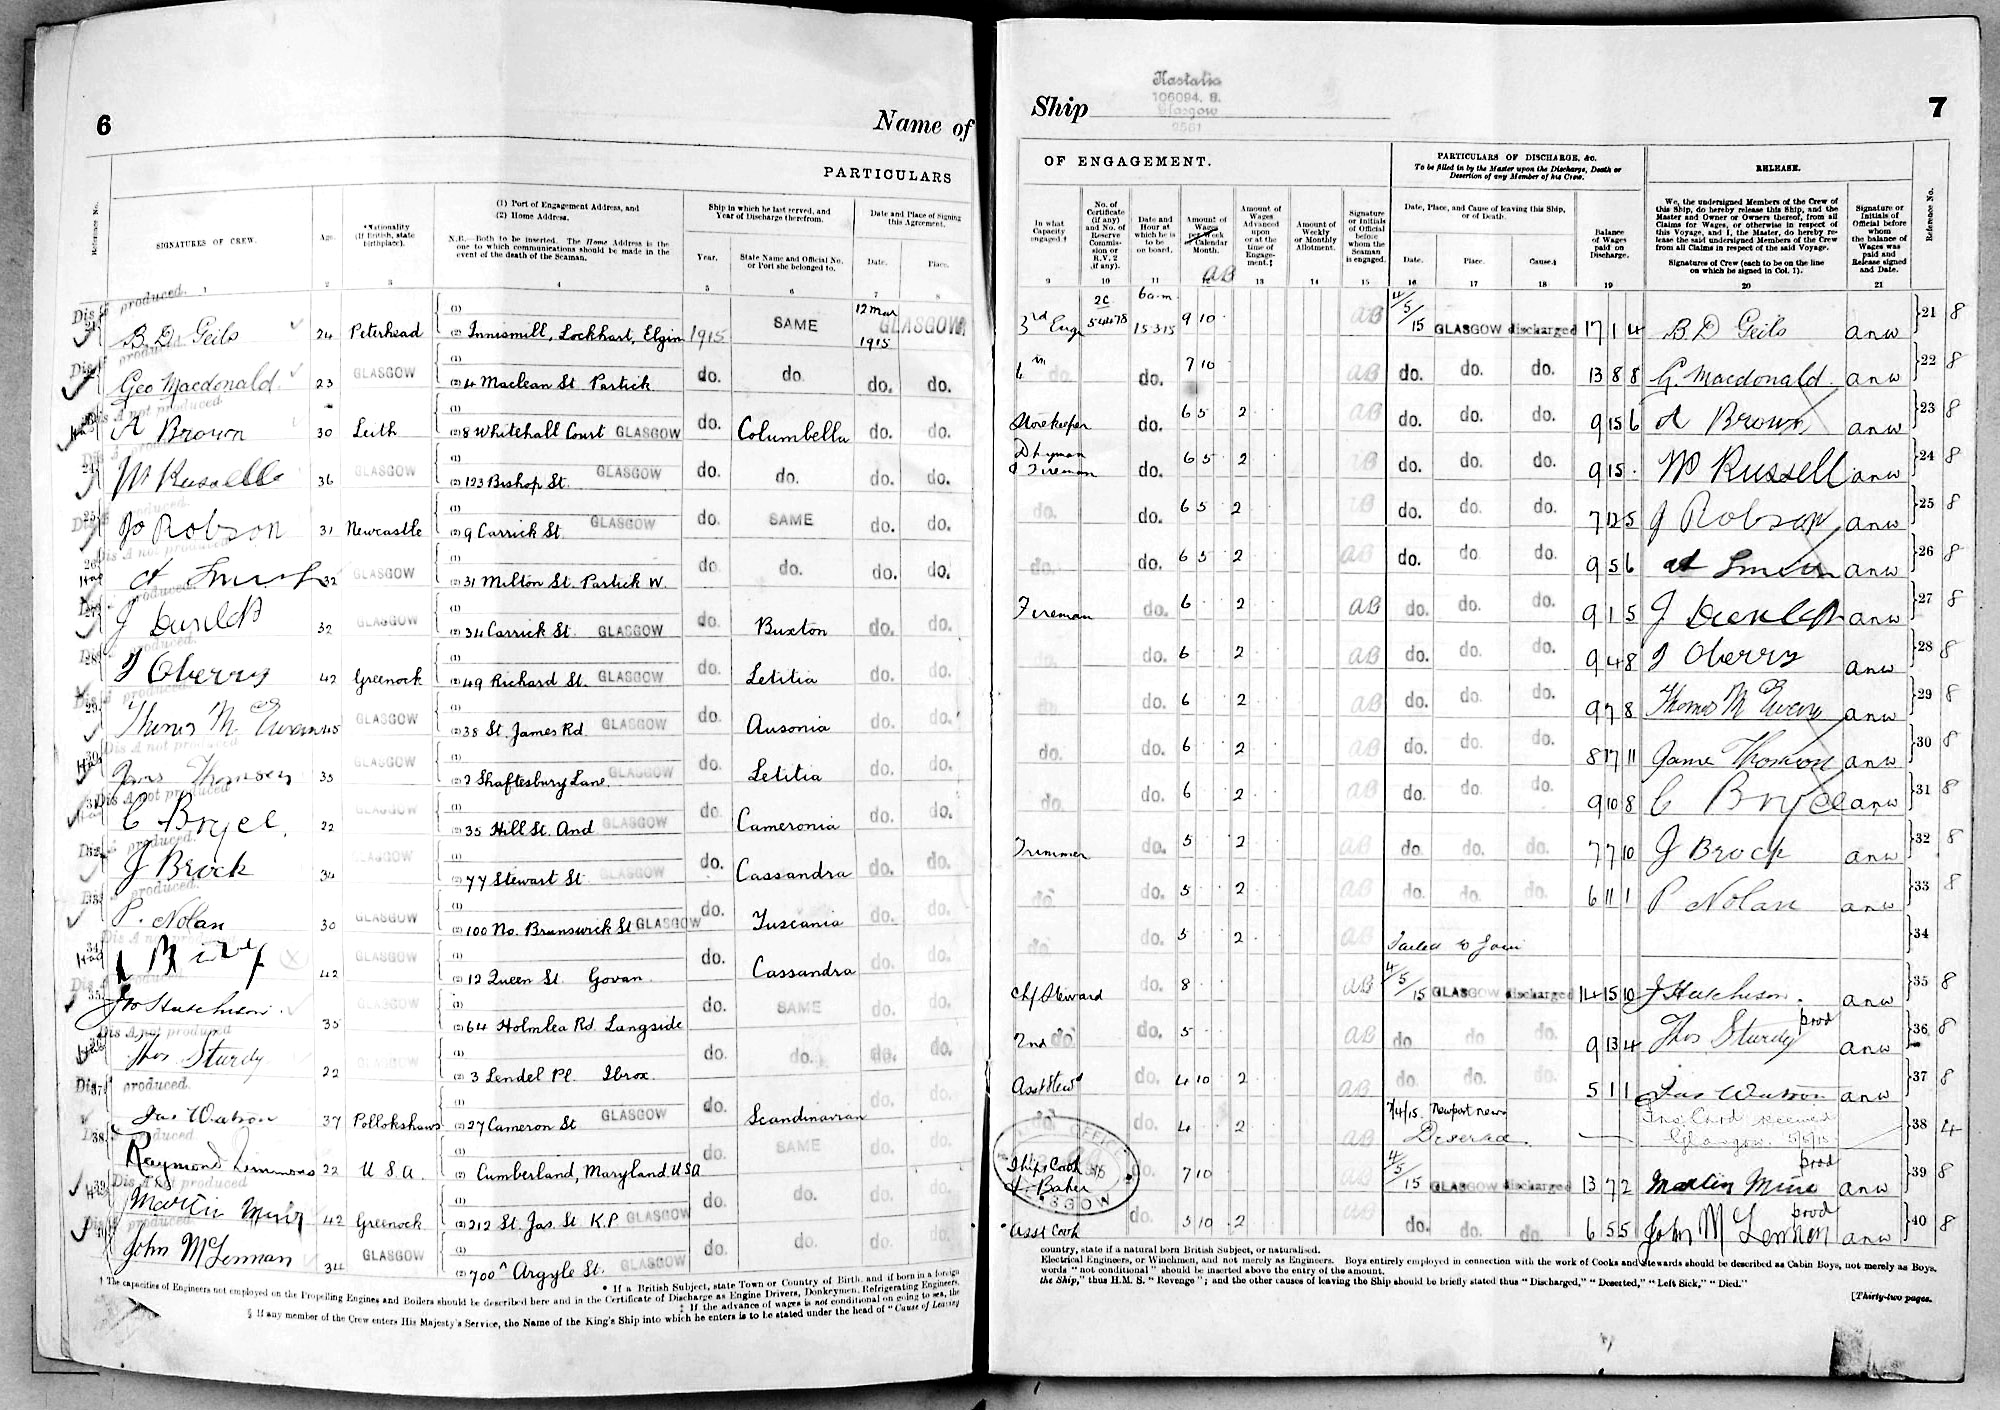 6
Name of
PARTICULARS
Reference No.
SIGNATURES OF CREW.
Age.
*Nationality (If British, state birthplace).
(1) Port of Engagement Address, and
(2) Home Address.
N.B.—Both to be inserted. The Home Address is the one to which communications should be made in the event of the death of the Seaman.
Ship in which he last served, and Year of Discharge therefrom.
Year.
State Name and Official No. or Port she belonged to.
Date and Place of Signing this Agreement.
Date.
Place.
1 2 3 4 5 6 7 8
Dis A produced.
21 B. D. Geils 24 Peterhead (1) (2) Innismill, Lockhart, Elgin 1915 SAME 12 Mar 1915 GLASGOW
22 Geo Macdonald 23 GLASGOW (1) (2) 4 Maclean St Partick do. do. do. do.
Dis A not produced.
23 A Brown 30 Leith (1) (2) 8 Whitehall Court GLASGOW do. Columbella do. do.
24 W Russell 36 GLASGOW (1) (2) 123 Bishop St. GLASGOW do. do. do. do.
25 J Robson 31 Newcastle (1) (2) 9 Carrick St. GLASGOW do. SAME do. do.
Dis A not produced.
26 A Smith 32 GLASGOW (1) (2) 31 Milton St. Partick W. do. do. do. do.
27 J 32 GLASGOW (1) (2) 34 Carrick St. GLASGOW do. Buxton do. do.
28 J Oberry 42 Greenock (1) (2) 49 Richard St. GLASGOW do. Letitia do. do.
29 Thomas M 45 GLASGOW (1) (2) 38 St. James Rd GLASGOW do. Ausonia do. do.
Dis A not produced
30 James Thomson 35 GLASGOW (1) (2) 2 Shaftesbury Lane GLASGOW do. Letitia do. do.
Dis A not produced
31 C Boyce. 22 GLASGOW (1) (2) 35 Hill St. And GLASGOW do. Cameronia do. do.
32 J Brock 34 GLASGOW (1) (2) 77 Stewart St GLASGOW do. Cassandra do. do.
33 P. Nolan 30 GLASGOW (1) (2) 100 No. Brunswick St GLASGOW do. Tuscania do. do.
34 42 GLASGOW (1) (2) 12 Queen St Govan do. Cassandra do. do.
35 J Hutchison. 35 GLASGOW (1) (2) 64 Holmlea Rd Langside do. SAME do. do.
Dis A not produced
36 Thos Sturdy 22 GLASGOW (1) (2) 3 Lendel Pl. Ibrox. do. do. do. do.
37 Jas Watson 37 Pollokshaws (1) (2) 27 Cameron St GLASGOW do. Scandinavian do. do.
38 Raymond Simmons 22 U S A. (1) (2) Cumberland, Maryland. USA SAME do. do.
Dis A not produced
39 Martin Muir 42 Greenock (1) (2) 212 St. Jas. St K.P GLASGOW do. do. do. do.
40 John McLennan 34 GLASGOW (1) (2) 700A Argyle St. GLASGOW do. do. do. do.
* If a British Subject, state Town or Country of Birth, and if born in a foreign
† The capacities of Engineers not employed on the Propelling Engines and Boilers should be described here and in the Certificate of Discharge as Engine Drivers, Donkeymen, Refrigerating Engineers,
‡ If the advance of wages is not conditional on going to sea, the
§ If any member of the Crew enters His Majesty's Service, the Name of the King's Ship into which he enters is to be stated under the head of "Cause of Leaving
Ship
Kastalia
106094. S.
Glasgow
7
OF ENGAGEMENT.
PARTICULARS OF DISCHARGE, &c.
To be filled in by the Master upon the Discharge, Death or Desertion of any Member of his Crew.
RELEASE.
In what Capacity engaged.†
No. of Certificate (if any) and No. of Reserve Commission or R.V. 2 (if any).
Date and Hour at which he is to be on board.
Amount of Wages per Week or Calendar Month.
AB
Amount of Wages Advanced upon or at the time of Engagement.‡
Amount of Weekly or Monthly Allotment.
Signature or Initials of Official before whom the Seaman is engaged.
Date, Place, and Cause of leaving this Ship, or of Death.
Date.
Place.
Cause.§
Balance of Wages paid on Discharge.
We, the undersigned Members of the Crew of this Ship, do hereby release this Ship, and the Master and Owner or Owners thereof, from all Claims for Wages, or otherwise in respect of this Voyage, and I, the Master, do hereby release the said undersigned Members of the Crew from all Claims in respect of the said Voyage.
Signatures of Crew (each to be on the line on which he signed in Col. 1).
Signature or Initials of Official before whom the balance of Wages was paid and Release signed and Date.
Reference No.
9 10 11 12 13 14 15 16 17 18 19 20 21
3rd Eng 2C 54478 6 a.m. 15 3 15 9 10 AB 4/5/15 GLASGOW discharged 17 1 4 B D Geils anw 21 8
4th do. do. 7 10 AB do. do. do. 13 8 8 G. Macdonald. anw 22 8
Storekeeper do. 6 5 2 AB do. do. do. 9 15 6 A Brown anw 23 8
Dkyman & Fireman do. 6 5 2 AB do. do. do. 9 15 W Russell anw 24 8
do. do. 6 5 2 AB do. do. do. 7 12 5 J Robson anw 25 8
do. do. 6 5 2 AB do. do. do. 9 5 6 A Smith anw 26 8
Fireman do. 6 2 AB do. do. do. 9 1 5 J anw 27 8
do. do. 6 2 AB do. do. do. 9 4 8 J Oberry anw 28 8
do. do. 6 2 AB do. do. do. 9 7 8 Thomas M anw 29 8
do. do. 6 2 AB do. do. do. 8 17 11 James Thomson anw 30 8
do. do. 6 2 AB do. do. do. 9 10 8 C Boyce anw 31 8
Trimmer do. 5 2 AB do do. do. 7 7 10 J Brock anw 32 8
do. do. 5 2 AB do. do. do. 6 11 1 P Nolan anw 33 8
do. do. 5 2 AB Failed to Join 34
Chf Steward do. 8 AB 4/5/15 GLASGOW discharged 14 15 10 J Hutchison. anw 35 8
2nd do. do. 5 AB do. do. do. 9 13 4 Thos Sturdy prod anw 36 8
Asst Stewd do. 4 10 2 AB do. do. do. 5 1 1 Jas Watson anw 37 8
do. do. 4 2 AB 7/4/15. Newport news Deserted. Ins. Card received Glasgow. 5/5/15 38 4
Ships Cook & Baker do. 7 10 4/5/15 GLASGOW discharged 13 7 2 Martin Muir prod anw 39 8
Asst Cook do. 5 10 2 AB do. do. do. 6 5 5 John McLennan prod anw 40 8
country, state if a natural born British Subject, or naturalised.
Electrical Engineers, or Winchmen, and not merely as Engineers. Boys entirely employed in connection with the work of Cooks and Stewards should be described as Cabin Boys, not merely as Boys.
words "not conditional" should be inserted above the entry of the amount.
the Ship," thus H.M.S. "Revenge"; and the other causes of leaving the Ship should be briefly stated thus "Discharged," "Deserted," "Left Sick," "Died."
[Thirty-two pages.